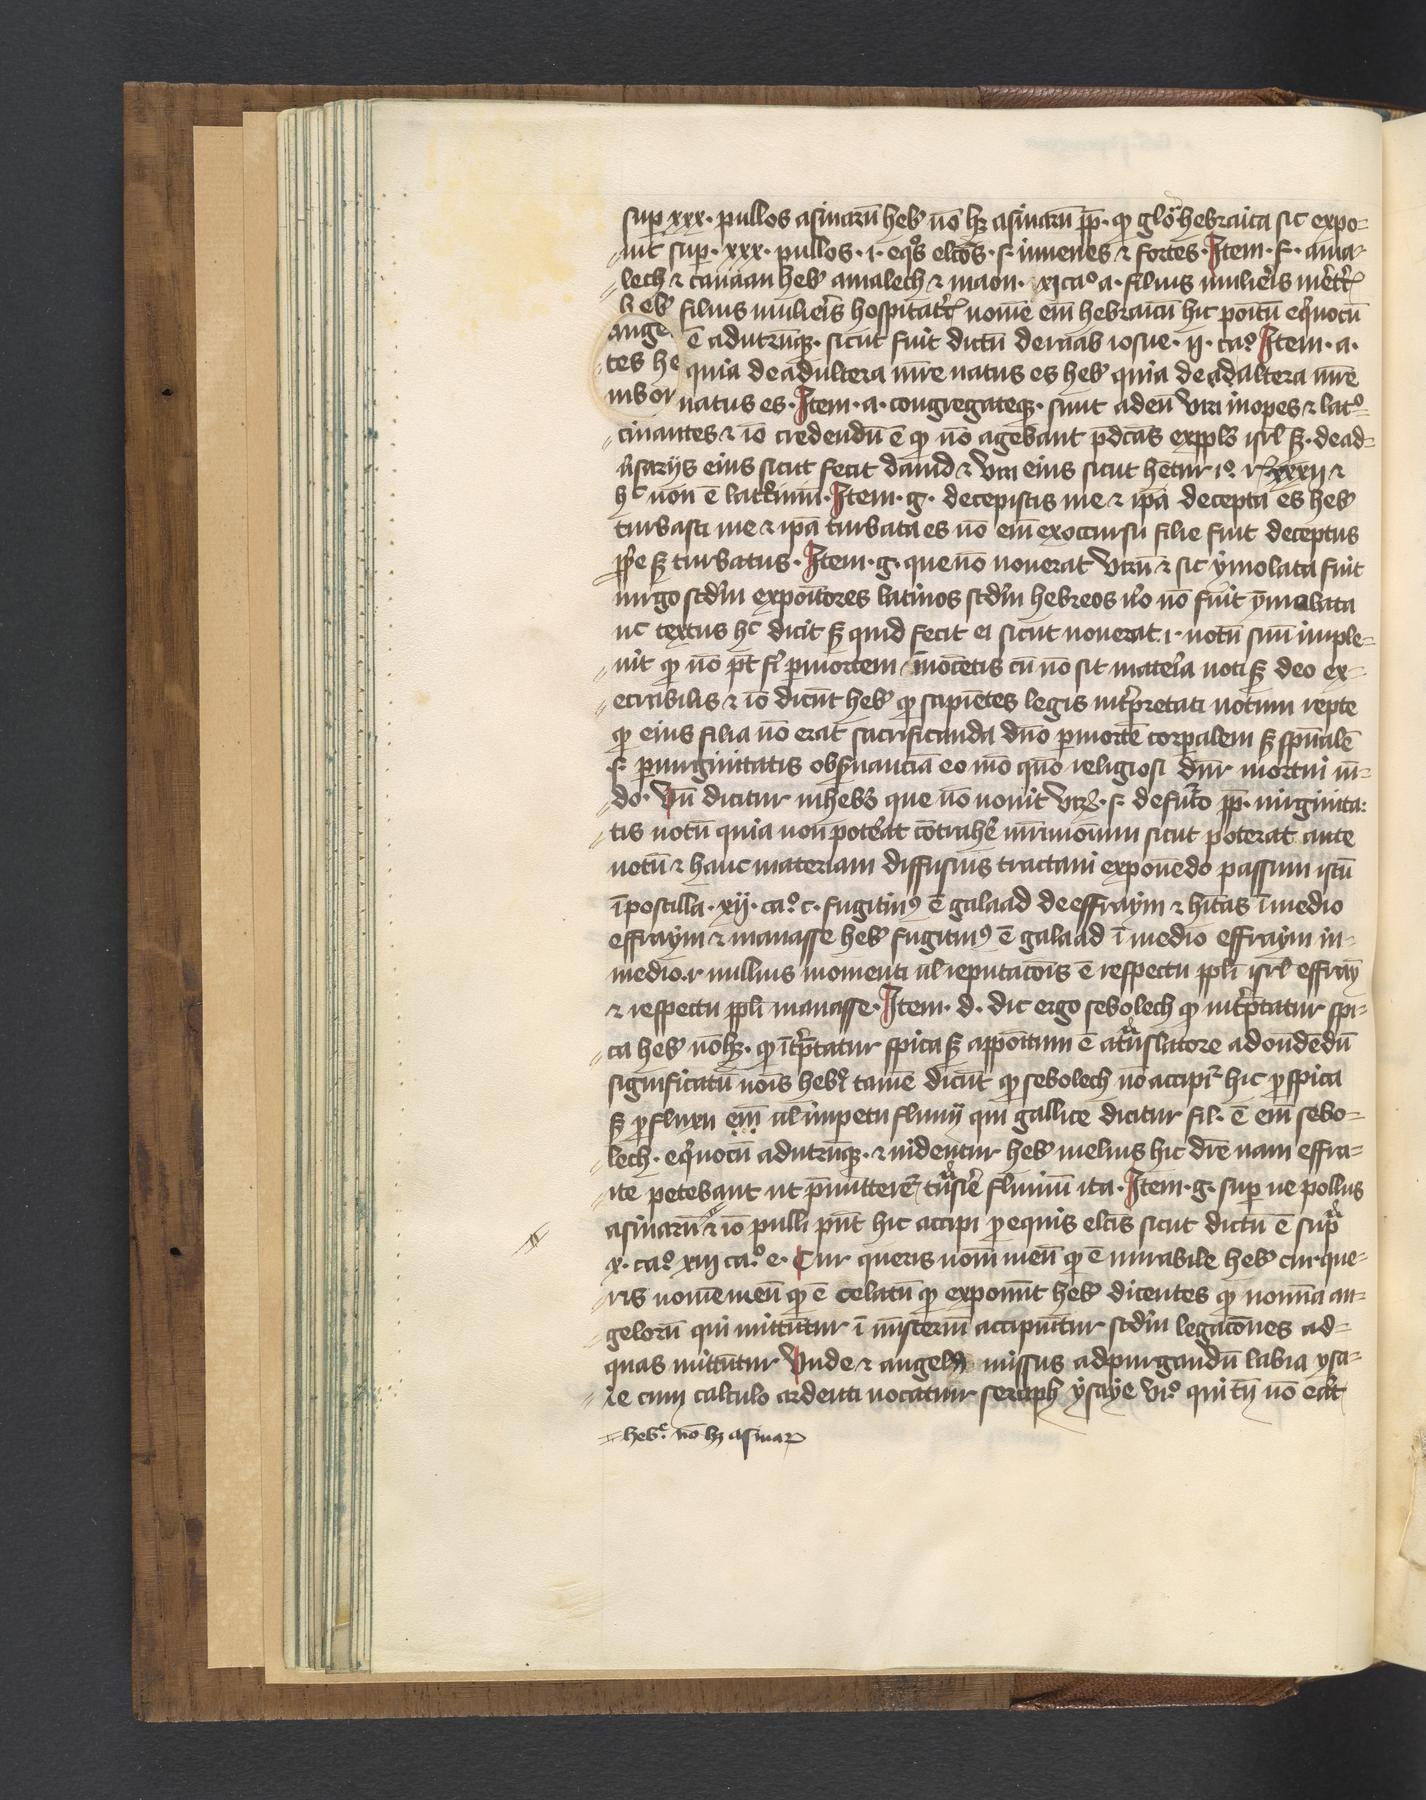 sup xxx · pullos asinarū heb̄ nō hȝ asinarū pp̄ · qꝫ glō hebraica sic expo-
nit sup · xxx · pullos · i · eqͦs elcōs · s · iuuenes ⁊ fortes · Item · f · ama-
lech ⁊ canaan heb̄ amalech ⁊ maon · xi caͦ a · filius mulieris
heb̄ filius mulieris nomē em̄ hebraicū hic poītū eqͥuocū
ange
ē adutrūqꝫ · sicut fuit dictū de raab iosue · ij · caͦ Item · a ·
tes he
quia de adultera mr̄e natus es heb̄ quia de adaltera mr̄e
natus es · Item · a · congregateqꝫ · sunt ad eū viri inopes ⁊ latͦ-
cinantes ⁊ iō credendū ē qꝫ nō agebant pdcās isrl sꝫ · de ad-
ūsarijs eius sicut fecit dauid ⁊ viri eius sicut hētur
hͨ non ē · Item · g · decepistis me ⁊ ipā decepta es heb̄
turbasti me ⁊ ipā turbata es nō em̄ ex occursu filie fuit deceptus
sꝫ turbatus · Item · g · que nō nouerat virū ⁊ sic ymolata fuit
uirgo scdm̄ expoītores latinos scdm̄ hebreos ūo nō fuit ymalata
nͨ textus hͨ dicit sꝫ quid fecit ei sicut nouerat · i · uotū suū imple-
uit qꝫ nō pt fi p mortem inocētis cū nō sit materia uoti sꝫ deo ex-
ecrabilis ⁊ iō dicūt heb̄ qꝫ sapiētes legis int̄pretati uotum iepte
qꝫ eius filia nō erat sacrificanda dn̄o p mortē corpalem sꝫ spūalē
s · p uirginitatis obs̄uanciā eo mō quō religiosi dn̄r mortui mū-
do · Vn̄ dicitur in heb̄ que nō nouit · s · de fut̄o pp̄ · uirginita-
tis uotū quia non poterat cōtrahē mr̄imonium sicut poterat ante
uotū ⁊ hanc materiam diffusius tractaui exponēdo passum istū
ī postilla · xij · caͦ c · fugitiuꝰ ē galaad de effraym ⁊ hītas ī medio
effraym ⁊ manasse heb̄ fugitiuꝰ ē galaad ī medio effraym in
medio · i · nullius momenti ul reputacōis ē respectu ppli isrl effray
⁊ respectu ppli manasse · Item · d · dic ergo sebolech qꝫ int̄ptatur spi-
ca heb̄ nō hȝ · qꝫ īt̄ptatur spica sꝫ appoītum ē a trāslatore ad ondēdū
significatū nois hebͥ tamē dicūt qꝫ sebolech nō accipiͬ hic p spica
sꝫ p fluxu em̄ ul impetu fluuij qui gallice dicitur fil · ē em̄ sebo-
lech · eqͥuocū adutrūqꝫ · ⁊ uidentur heb̄ melius hic dr̄e nam effra-
ite petebant ut pmitterēt trāsire fluuiū ita · Item · g · sup ne pollus
asinarū ⁊ iō pulli pn̄t hic accipi p equis elcīs sicut dictū ē supͣ
x · caͦ xiij caͦ e · Cur queris nom̄ meū qꝫ ē mirabile heb̄ cur que-
ris nomē meū qꝫ ē celatū qꝫ exponūt heb̄ dicentes qꝫ nomīa an-
gelorū qui mittūtur ī misteriū accipiūtur scdm̄ legacōnes ad-
quas mittūtur Vnde ⁊ angelus missus ad purgandū labia ysa-
ie cum calculo ardenti uocatur seraph ysaye viͦ qui tn̄ nō eāt
heb̄ͤ · nō hȝ asinaꝝ